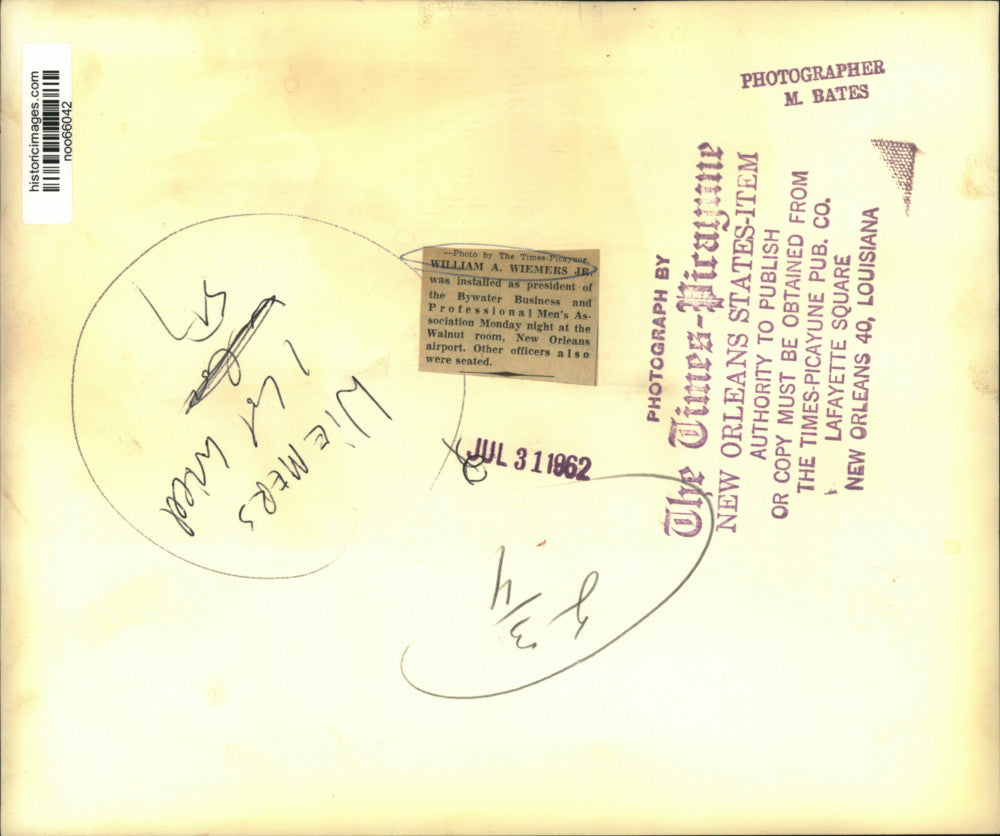 historicimages.com
noo66042
PHOTOGRAPHER
M. BATES
—Photo by The Times-Picayune.
WILLIAM A. WIEMERS JR.
was installed as president of
the Bywater Business and
Professional Men's As-
sociation Monday night at the
Walnut room, New Orleans
airport. Other officers also
were seated.
JUL 31 1962
PHOTOGRAPH BY
The Times-Picayune
NEW ORLEANS STATES-ITEM
AUTHORITY TO PUBLISH
OR COPY MUST BE OBTAINED FROM
THE TIMES-PICAYUNE PUB. CO.
LAFAYETTE SQUARE
NEW ORLEANS 40, LOUISIANA
WIEMERS
1 col
3/4